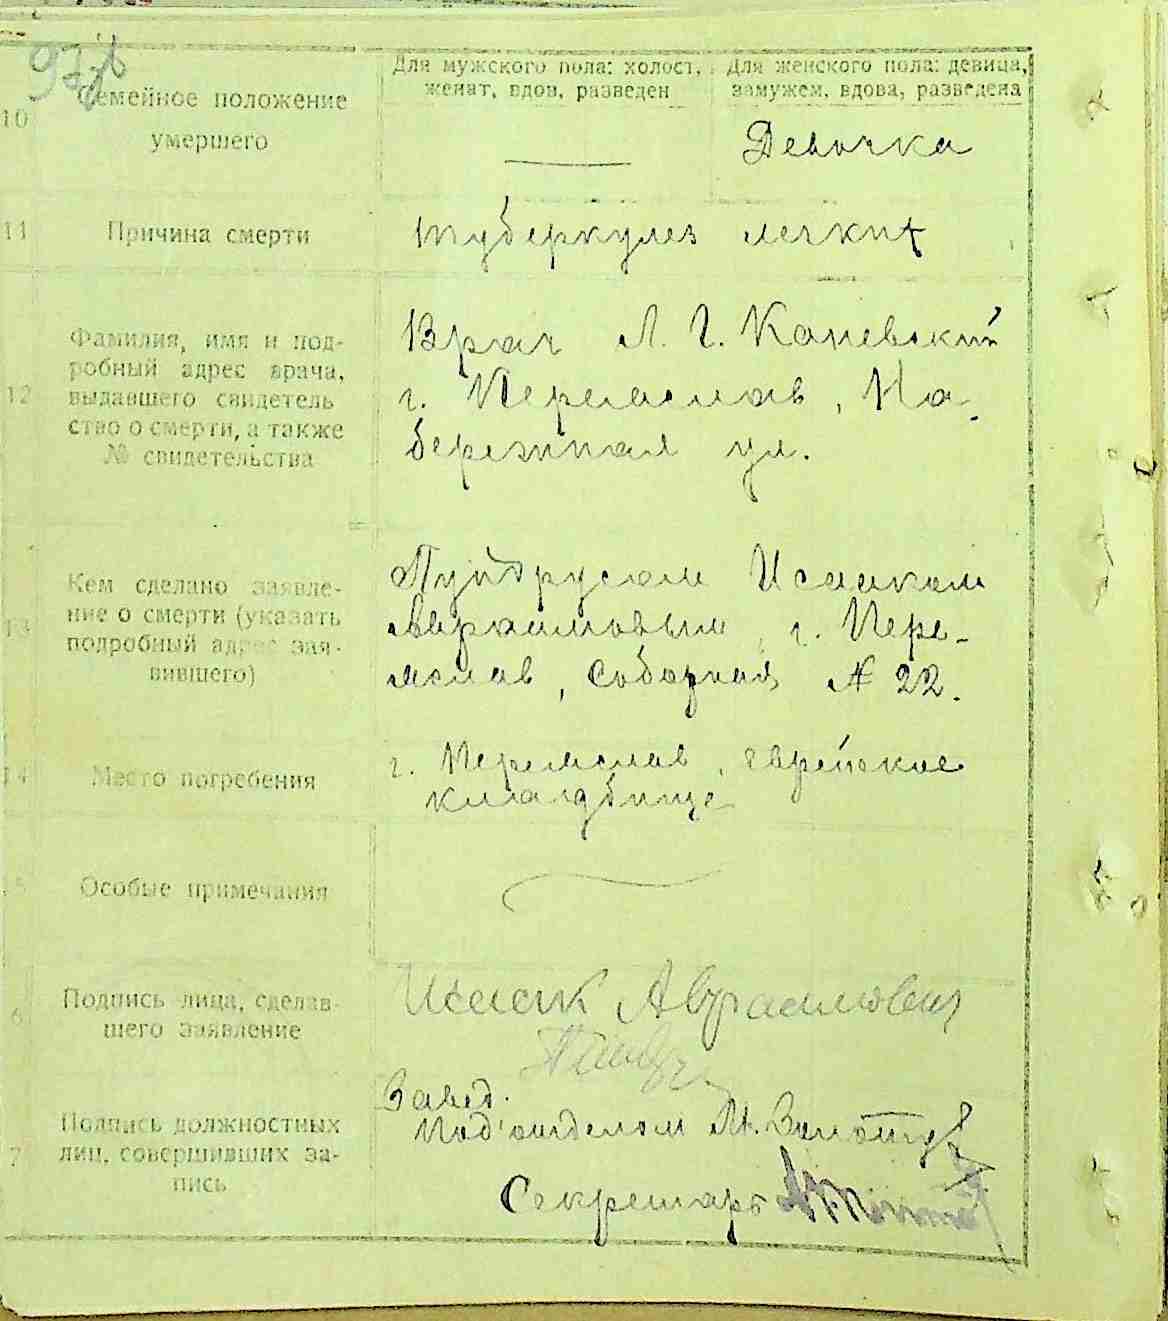 10
Семейное положение
умершего
Для мужского пола: холост,
женат, вдов, разведен
Для женского пола: девица,
замужем, вдова, разведена
Девочка
11
Причина смерти
туберкулез легких
12
Фамилия, имя и под-
робный адрес врача,
выдавшего свидетель
ство о смерти, а также
№ свидетельства
Врач Л. Г. Каневский
г. Переяслав, На-
бережная ул.
13
Кем сделано заявле-
ние о смерти (указать
подробный адрес зая-
вившего)
Исааком
г. Пере-
яслав, Соборная № 22.
14
Место погребения
г. Переяслав, еврейское
кладбище
5
Особые примечания
6
Подпись лица, сделав-
шего заявление
Исаак Авраамович
7
Подпись должностных
лиц, совершивших за-
пись
Завед.
Под'отделом
Секретарь